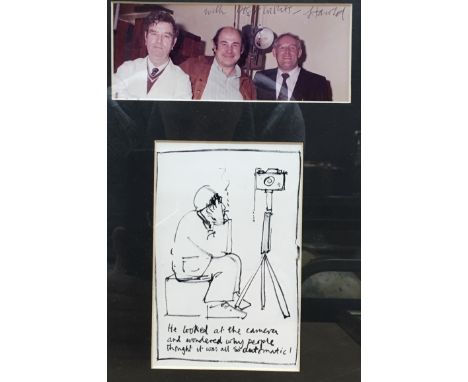 with best wishes - Harold
He looked at the camera
and wondered why people
thought it was all so automatic!